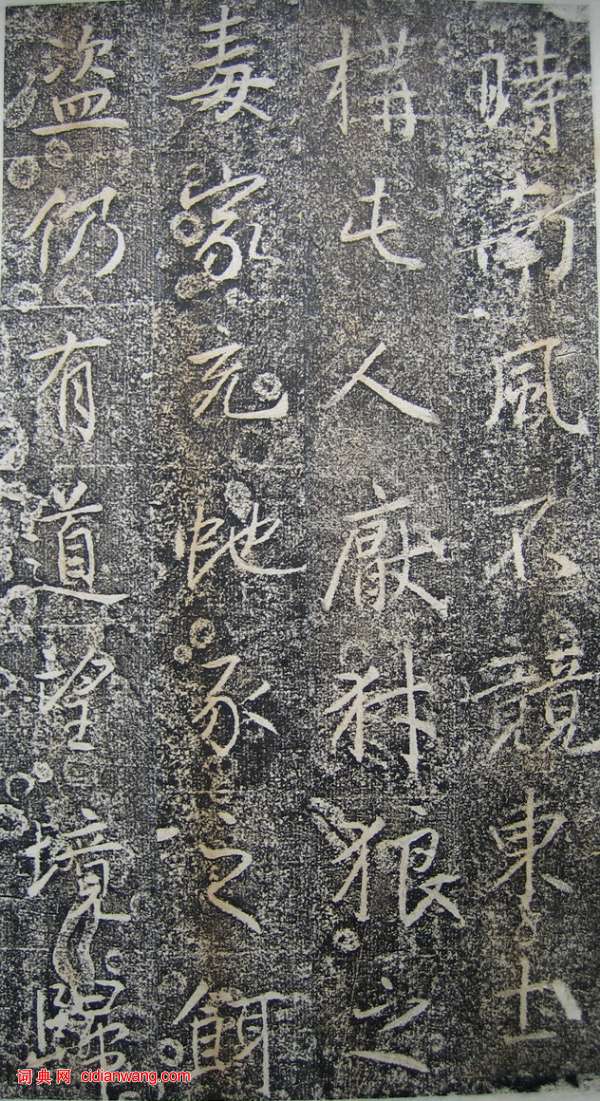 時南風不競東土
構屯人厭犲狼之
毒家充虵豕之餌
盜仍有道望境歸
词典网 cidianwang.com